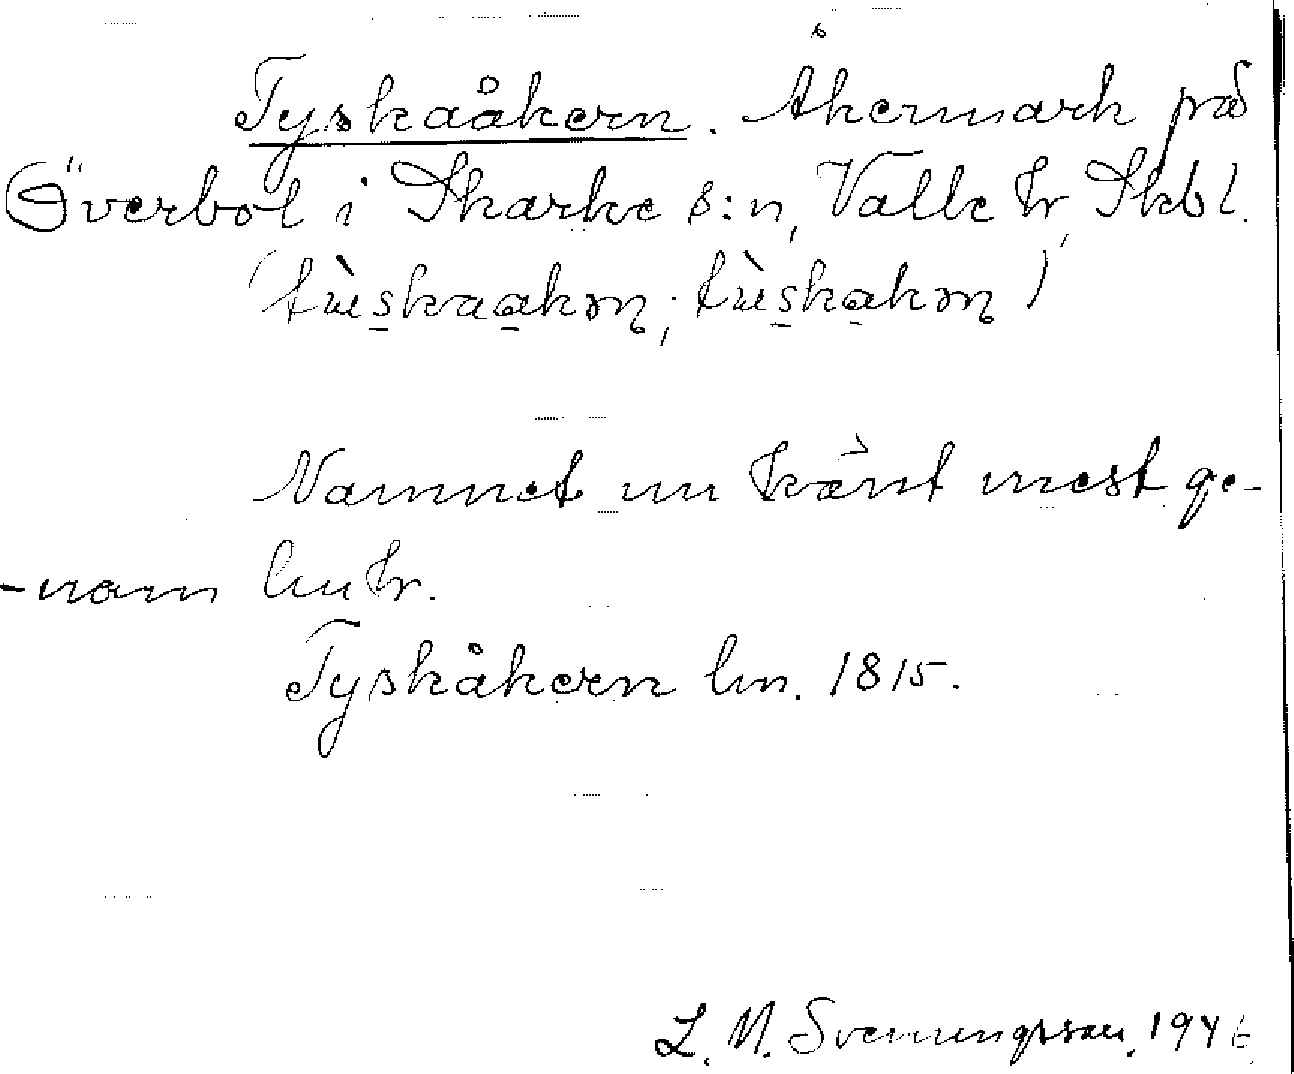 Tyskaåkern. Åkermark på
Överbol i Skarke s:n, Valle hr, Skbl.
Namnet nu känt mest ge-
-nom lm hr.
Tyskåkern lm. 1815.
L. M. Svenungsson, 1946